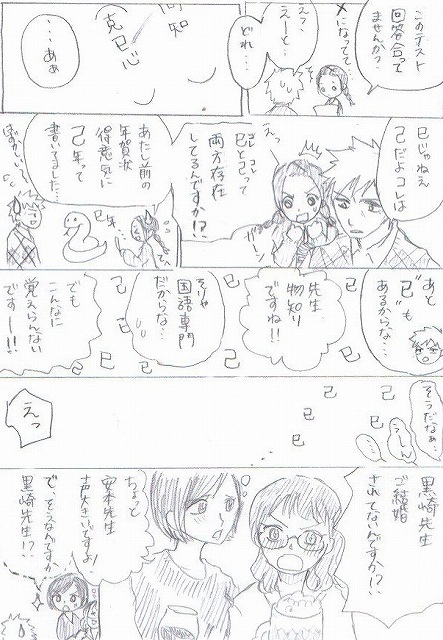 このテスト
回答合って
ませんか?
×になってて…
えっ?
えーと…
どれ…
克己心
…ああ
巳じゃねぇ
己だよコレは
えっ
巳と己って
両方存在
してるんですか!?
ガーン
あたし前の
年賀状
得意気に
己年って
書いてました…
巳年
あと
“已”も
あるからな…
先生
物知り
ですね!!
そりゃ
国語専門
だからな…
でも
こんなに
覚えらんない
ですー!!
そうだなぁ…
うーん
…
えっ
黒崎先生
ご結婚
されてないんですか!?
ちょっと
安本先生
声大きいですよ!
で、そうなんですか
黒崎先生!?